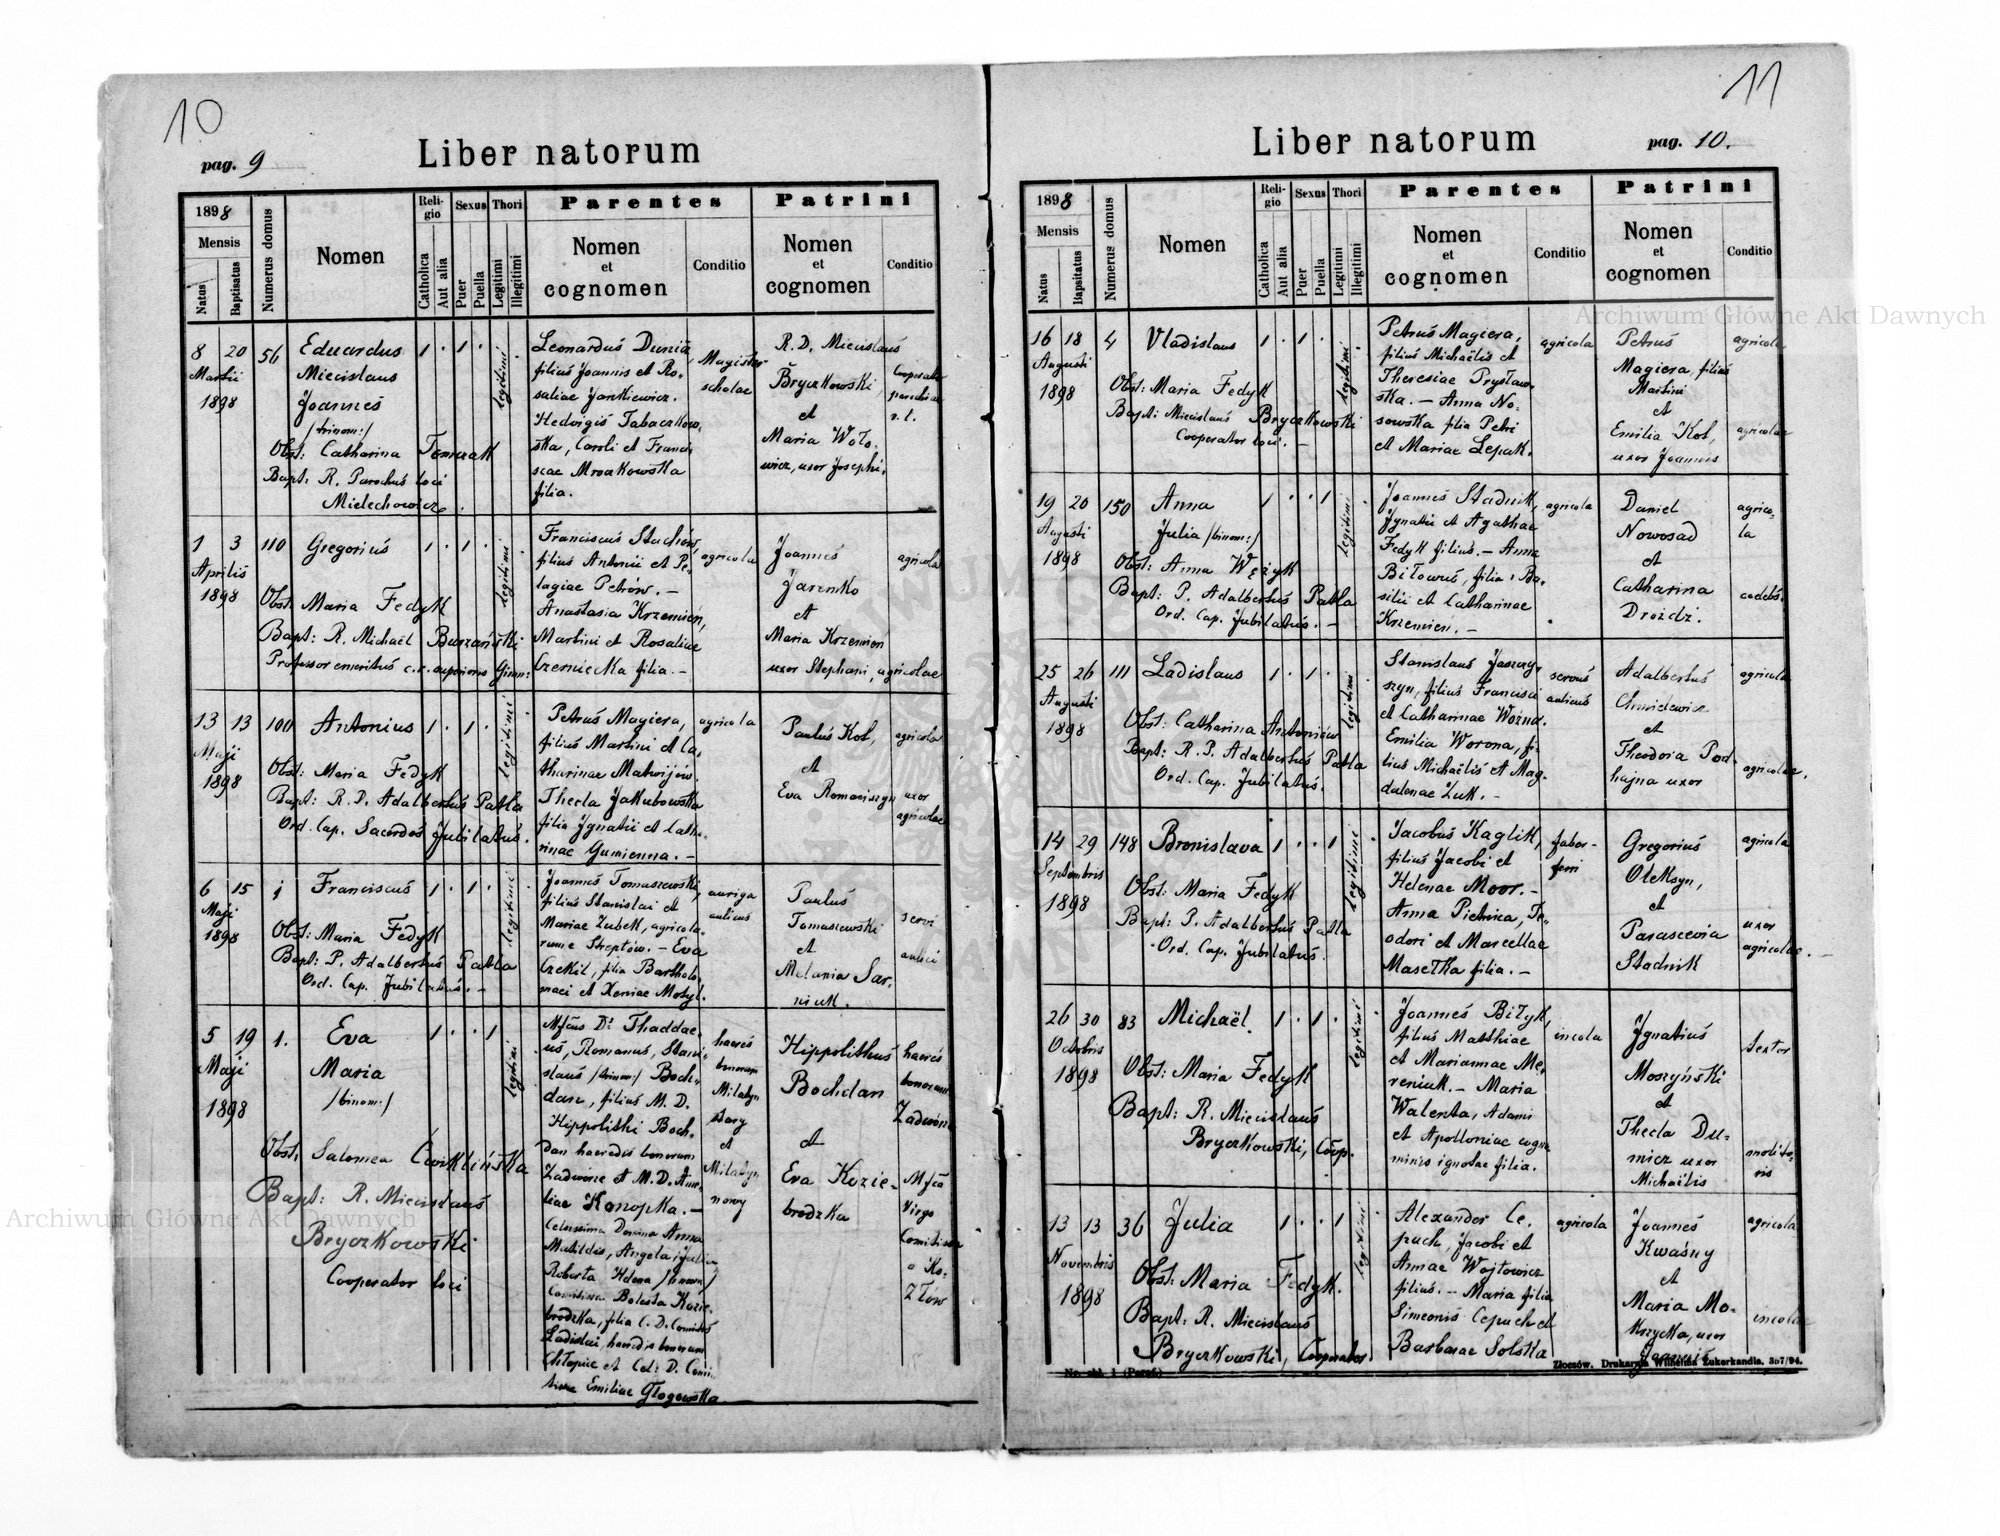 10
pag. 9
Liber natorum
1898
Mensis
Natus
Baptisatus
Numerus domus
Nomen
Religio
Catholica
Aut alia
Sexus
Puer
Puella
Thori
Legitimi
Illegitimi
Parentes
Nomen
et
cognomen
Conditio
Patrini
Nomen
et
cognomen
Conditio
8 20
Martii
1898
56
Eduardus
Miecislaus
Joannes
/trinom:/
Obst: Catharina Tomczak
Bapt: R. Parochus loci
Mielechowicz.
1 . 1 .
legitimi
Leonardus Dunia
filius Joannis et Ro-
saliae Jankiewicz.
Hedvigis Tabaczkow-
ska, Caroli et Francis-
scae Mroczkowska
filia.
Magister
scholae
R. D. Miecislaus
Bryczkowski
et
Maria Woło-
wicz, uxor Josephi.
Cooperator
r. l.
1 3
Aprilis
1898
110
Gregorius
Obst: Maria Fedyk
Bapt: R. Michaël Burzański
Professor emeritus c.r. superioris Gimn:
1 . 1 .
legitimi
Franciscus Stachów,
filius Antonii et Pe-
lagiae Petrów. —
Anastasia Krzemień,
Martini et Rosaliae
Czerniecka filia. —
agricola
Joannes
Jaremko
et
Maria Krzemien
uxor Stephani, agricolae
agricola
13 13
Maji
1898
100
Antonius
Obst: Maria Fedyk
Bapt: R. P. Adalbertus Patla
Ord. Cap. Sacerdos Jubilatus.
1 . 1 .
legitimi
Petrus Magiera,
filius Martini et Ca-
tharinae Matwijów.
Thecla Jakubowska
filia Ignatii et Catha-
rinae Gumienna. —
agricola
Paulus Kot,
et
Eva Romaniszyn
agricola
uxor
agricolae
6 15
Maji
1898
1
Franciscus
Obst: Maria Fedyk
Bapt: P. Adalbertus Patla
Ord. Cap. Jubilatus. —
1 . 1 .
legitimi
Joannes Tomaszewski,
filius Stanislai et
Mariae Zubek, agricola-
rum e Streptów. — Eva
Czekil, filia Bartholo-
maei et Xeniae Motyl.
auriga
aulicus
Paulus
Tomaszewski
et
Melania Sar-
niuk.
servi
aulici
5 19
Maji
1898
1.
Eva
Maria
/binom:/
Obst: Salomea Ćwiklińska
Bapt: R. Miecislaus
Bryczkowski
Cooperator loci
1 . . 1
legitimi
Mfcus Di Thaddae-
us, Romanus, Stani-
slaus /trinom:/ Boch-
dan, filius M. D.
Hippolithi Boch-
dan haeredis bonorum
Zadwórze et M. D. Ame-
liae Konopka. —
Celsissima Domina Anna
Mathildis, Angela, Julia
Roberta Helena
Comitissa Bolesta Kozie-
brodzka, filia C. D. Comitis
Ladislai, haeredis bonorum
Chłopice et Cel: D. Comi-
tissae Emiliae Głogowska.
haeres
bonorum
Milatyn
stary
et
Milatyn
nowy
Hippolithus
Bochdan
et
Eva Kozie-
brodzka
haeres
bonorum
Zadwórze
Mfca
Virgo
Comitissa
a Ko-
złów
11
Liber natorum
pag. 10.
1898
Mensis
Natus
Bapsitatus
Numerus domus
Nomen
Religio
Catholica
Aut alia
Sexus
Puer
Puella
Thori
Legitimi
Illegitimi
Parentes
Nomen
et
cognomen
Conditio
Patrini
Nomen
et
cognomen
Conditio
16 18
Augusti
1898
4
Vladislaus
Obst: Maria Fedyk
Bapt: Miecislaus Bryczkowski
Cooperator loci. —
1 . 1 .
legitimi
Petrus Magiera,
filius Michaëlis et
Theresiae Prystaw-
ska. — Anna No-
sowska filia Petri
et Mariae Lepak.
agricola
Petrus
Magiera, filius
Martini
et
Emilia Kot,
uxor Joannis
agricola
agricolae
19 20
Augusti
1898
150
Anna
Julia /binom:/
Obst: Anna Wężyk
Bapt: P. Adalbertus Patla
Ord. Cap. Jubilatus. —
1 . . 1
legitimi
Joannes Stadnik,
Ignatii et Agathae
Fedyk filius. — Anna
Biłowus, filia Ba-
silii et Catharinae
Krzemień. —
agricola
Daniel
Nowosad
et
Catharina
Drozdz.
agrico-
la
caelebs.
25 26
Augusti
1898
111
Ladislaus
Obst: Catharina Antoniów
Bapt: R. P. Adalbertus Patla
Ord. Cap. Jubilatus.
1 . 1 .
legitimi
Stanislaus Jaszczy-
szyn, filius Francisci
et Catharinae Woźna.
Emilia Worona, fi-
lius Michaëlis et Mag-
dalenae Żuk. —
servus
aulicus
Adalbertus
Chmielewicz
et
Theodoria Pod-
hajna uxor
agricola
agricolae.
14 29
Septembris
1898
148
Bronislava
Obst: Maria Fedyk
Bapt: P. Adalbertus Patla
Ord. Cap. Jubilatus.
1 . . 1
legitimi
Jacobus Kaglik,
filius Jacobi et
Helenae Moor. —
Anna Pietnica, Te-
odori et Marcellae
Masełka filia. —
faber-
ferri
Gregorius
Oleksyn,
et
Parascevia
Stadnik
agricola
uxor
agricolae. —
26 30
Octobris
1898
83
Michaël.
Obst: Maria Fedyk
Bapt: R. Miecislaus
Bryczkowski, Coop.
1 . 1 .
legitimi
Joannes Biłyk,
filius Matthiae
et Mariannae Me-
reniuk. — Maria
Walenta, Adami
et Apolloniae cogno-
minis ignotae filia.
incola
Ignatius
Moszyński
et
Thecla Du-
micz uxor
Michaëlis
textor
molito-
ris
13 13
Novembris
1898
36
Julia
Obst: Maria Fedyk.
Bapt: R. Miecislaus
Bryczkowski, Cooperator
1 . . 1
legitimi
Alexander Ce-
puch, Jacobi et
Annae Wojtowicz
filius. — Maria filia
Simeonis Cepuch et
Barbarae Solska
agricola
Joannes
Kwaśny
et
Maria Mo-
krzycka, uxor
Joannis
agricola
incolae
Złoczów. Drukarnia Wilhelma Zukerkandla. 357/94.
Archiwum Główne Akt Dawnych
Archiwum Główne Akt Dawnych